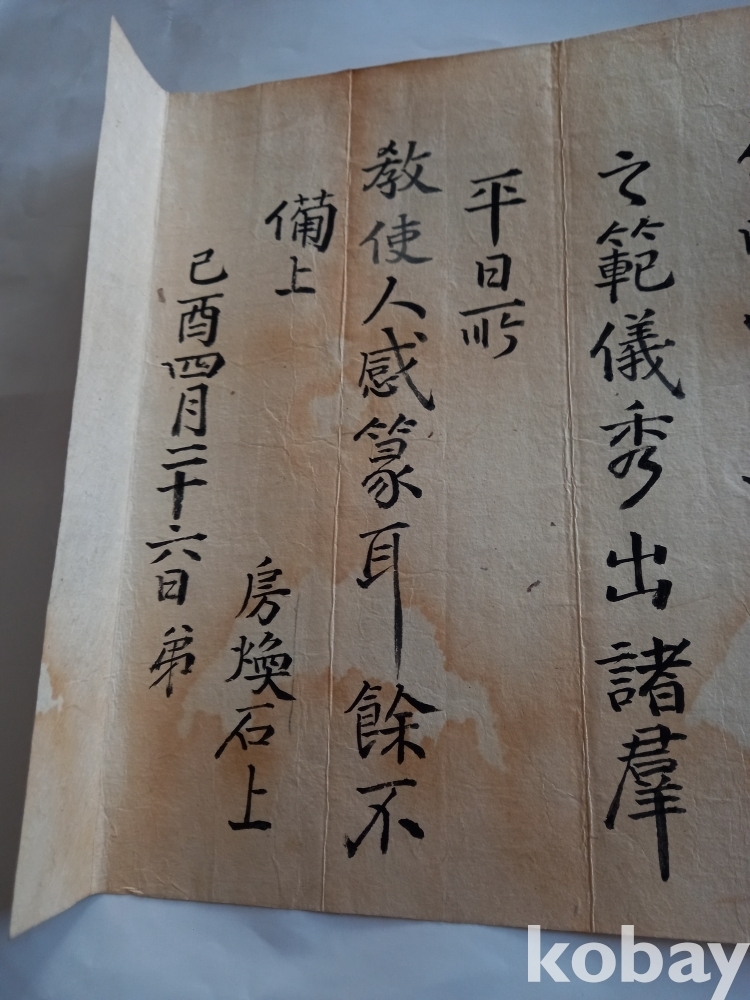 之範儀秀出諸羣
平日所
教使人感篆耳餘不
備上
己酉四月二十六日 弟
房煥石上
kobay